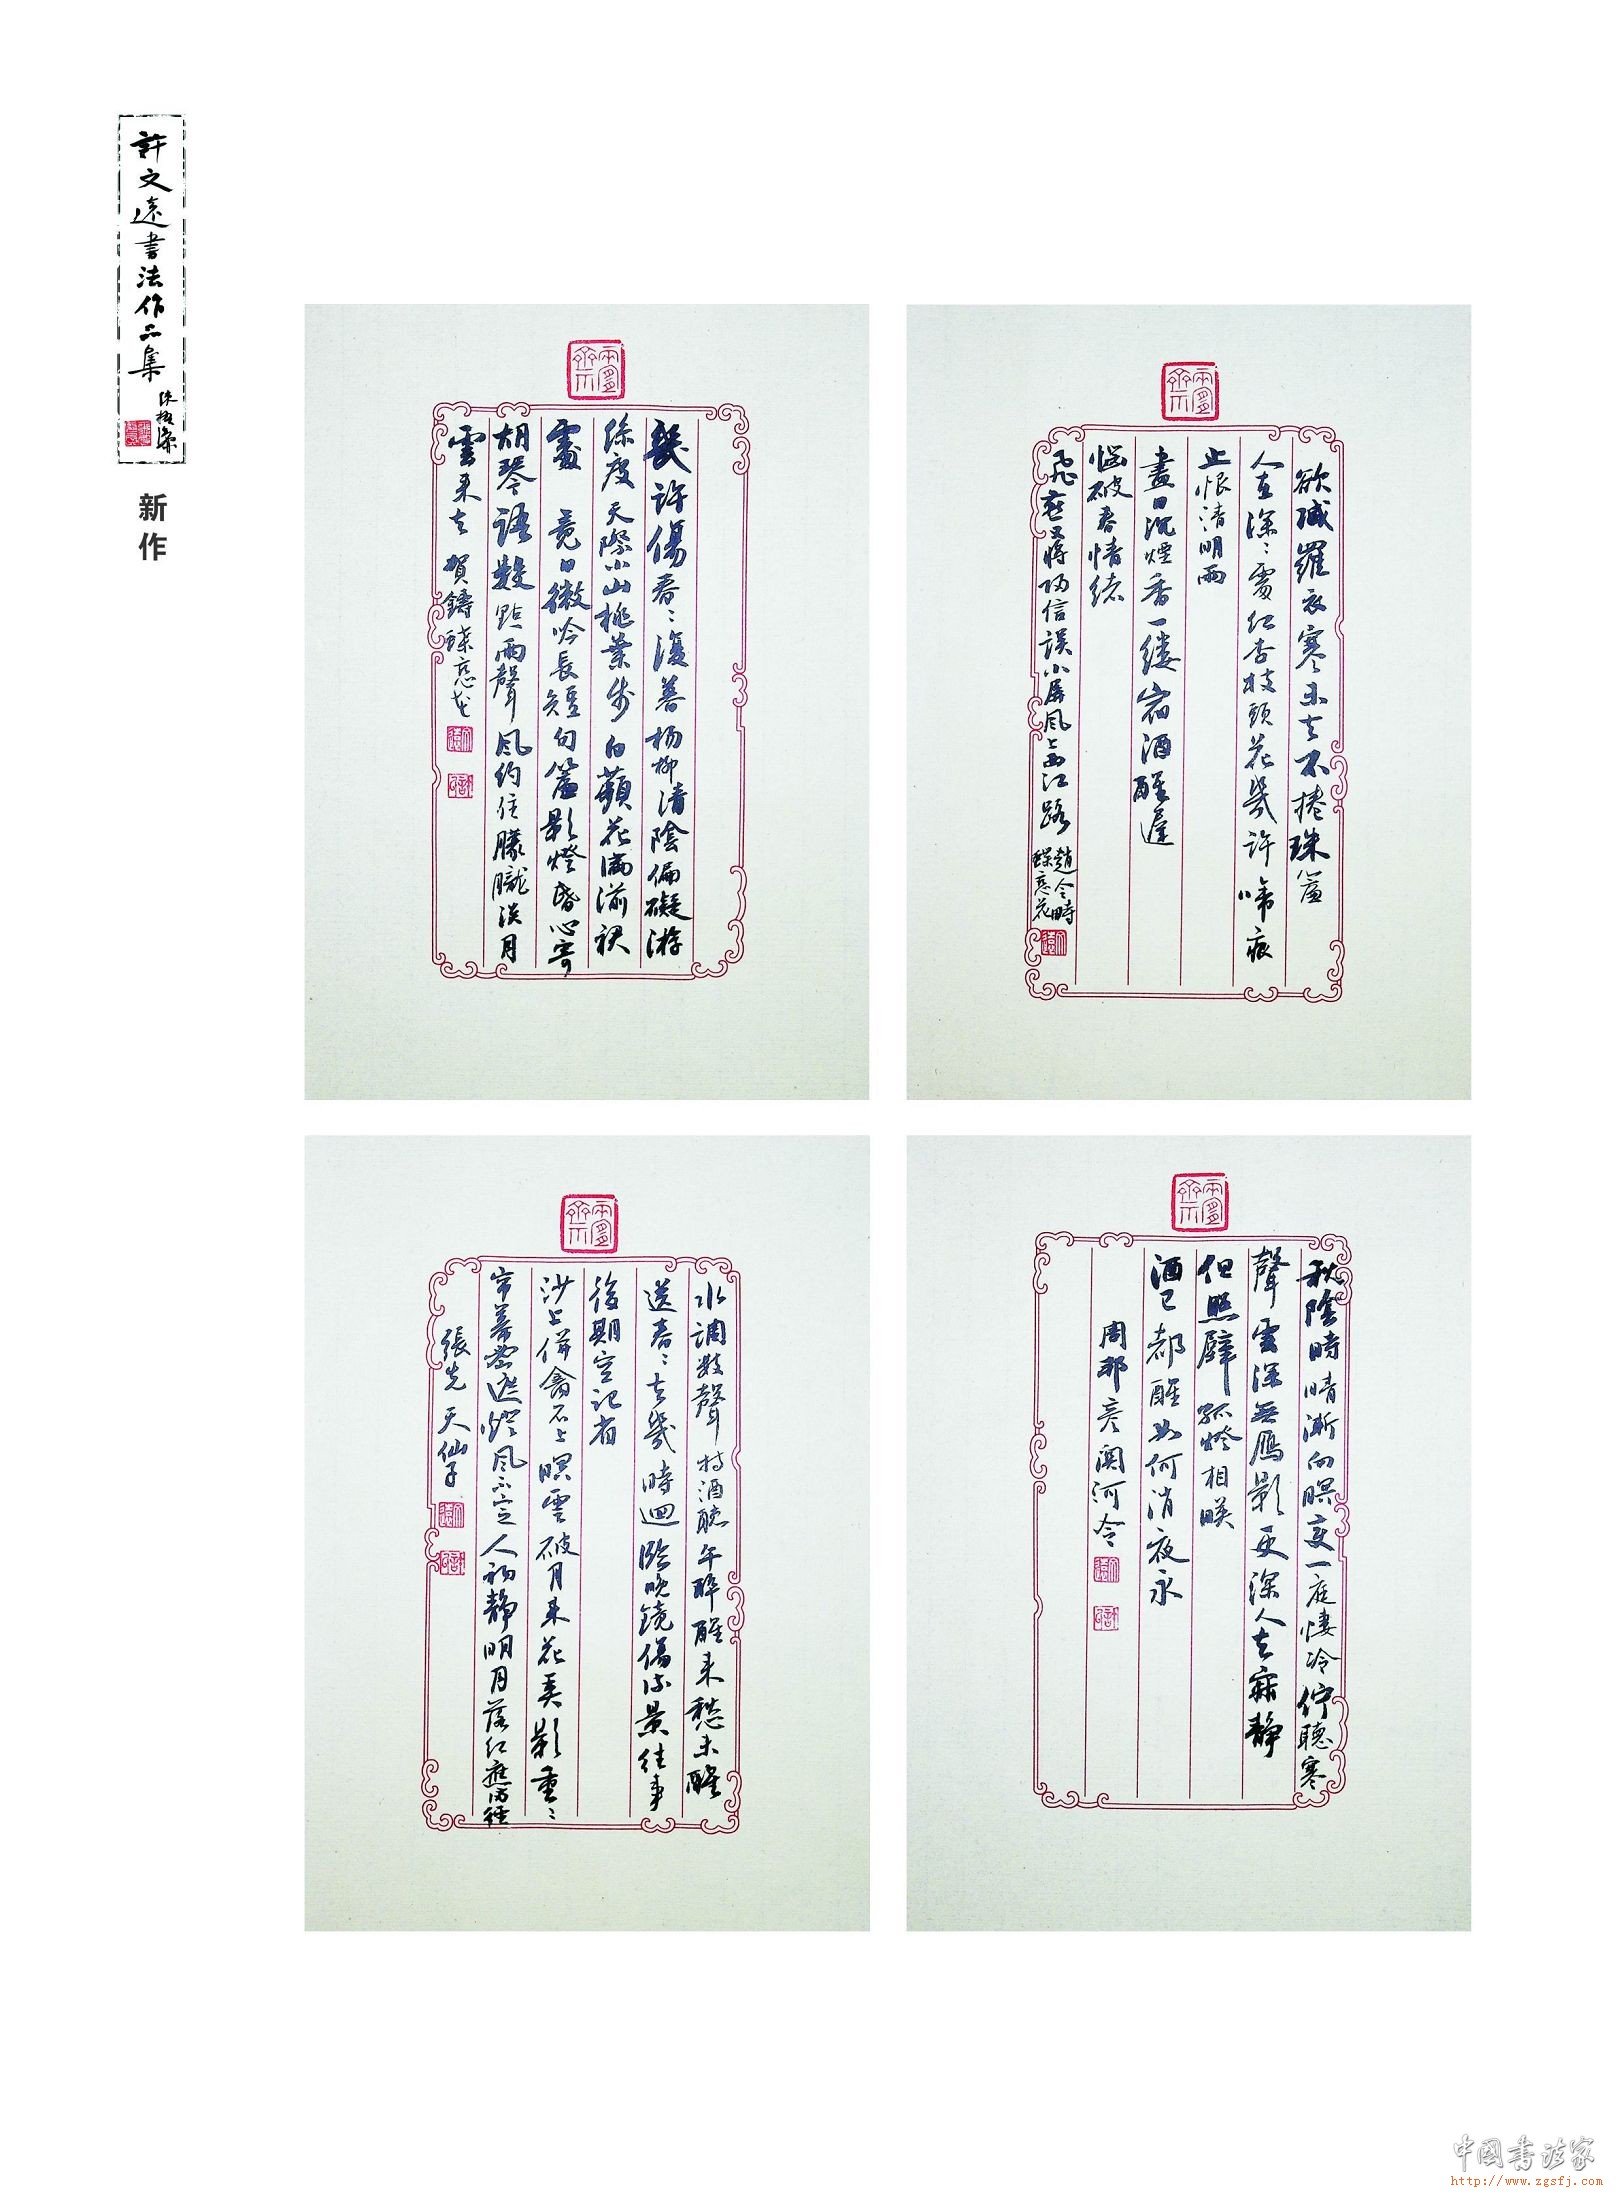 許文遠書法作品集
陈振濂
新作
欲減羅衣寒未去不捲珠簾
人在深〻處紅杏枝頭花幾許啼痕
止恨清明雨
盡日沉煙香一縷宿酒醒遲
惱破春情緒
飛燕又將歸信誤小屏風上西江路
趙令畤
蝶戀花
幾許傷春〻復暮楊柳清陰偏礙游
絲度天際小山桃葉步白蘋花滿湔裙
處 竟日微吟長短句簾影燈昏心寄
胡琴語數點雨聲風約住朦朧淡月
雲來去 賀鑄蝶戀花
秋陰時晴漸向暝变一庭悽冷佇聽寒
聲雲深無雁影更深人去寂靜
但照壁孤燈相映
酒已都醒如何消夜永
周邦彦關河令
水調數聲持酒聽午醉醒來愁未醒
送春〻去幾時迴臨晚鏡傷流景往事
後期空記省
沙上併禽池上暝雲破月來花弄影重〻
帘幕密遮燈風不定人初靜明月落紅應滿徑
張先 天仙子
中国书法家
http://www.zgsfj.com